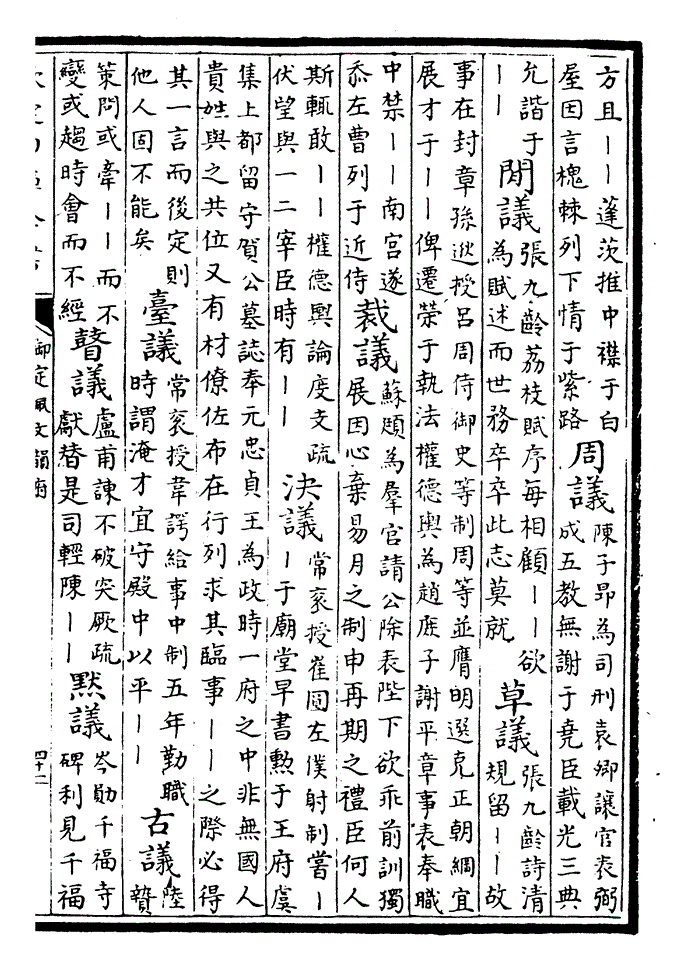 方且丨丨蓬茨推中襟于白
屋因言槐棘列下情于紫路
周議
陳子昂為司刑袁卿讓官表弼
成五教無謝于堯臣載光三典
允諧于
丨丨
閒議
張九齡荔枝賦序每相顧丨丨欲
為賦述而世務卒卒此志莫就
草議
張九齡詩清
規留丨丨故
事在封章孫逖授呂周侍御史等制周等並膺明選克正朝綱宜
展才于丨丨俾遷榮于執法權德輿為趙庶子謝平章事表奉職
中禁丨丨丨南宮遂
忝左曹列于近侍
裁議
蘇頲為羣官請公除表陛下欲乖前訓獨
展因心棄易月之制申再期之禮臣何人
斯輒敢丨丨權德輿論度支疏
伏望與一二宰臣時有丨丨
決議
常衮授崔圓左僕射制嘗丨
丨于廟堂早書勲于王府虞
集上都留守賀公墓誌奉元忠貞王為政時一府之中非無國人
貴姓與之共位又有材僚佐布在行列求其臨事丨丨之際必得
其一言而後定則
他人固不能矣
臺議
常衮授韋諤給事中制五年勤職
時謂淹才宜守殿中以平丨丨
古議
陸
贄
策問或牽丨丨而不
變或趨時會而不經
瞽議
盧甫諫不破突厥疏
獻替是司輕陳丨丨
默議
岑勛千福寺
碑利見千福
欽定四庫全書
御定佩文韻府
四十二